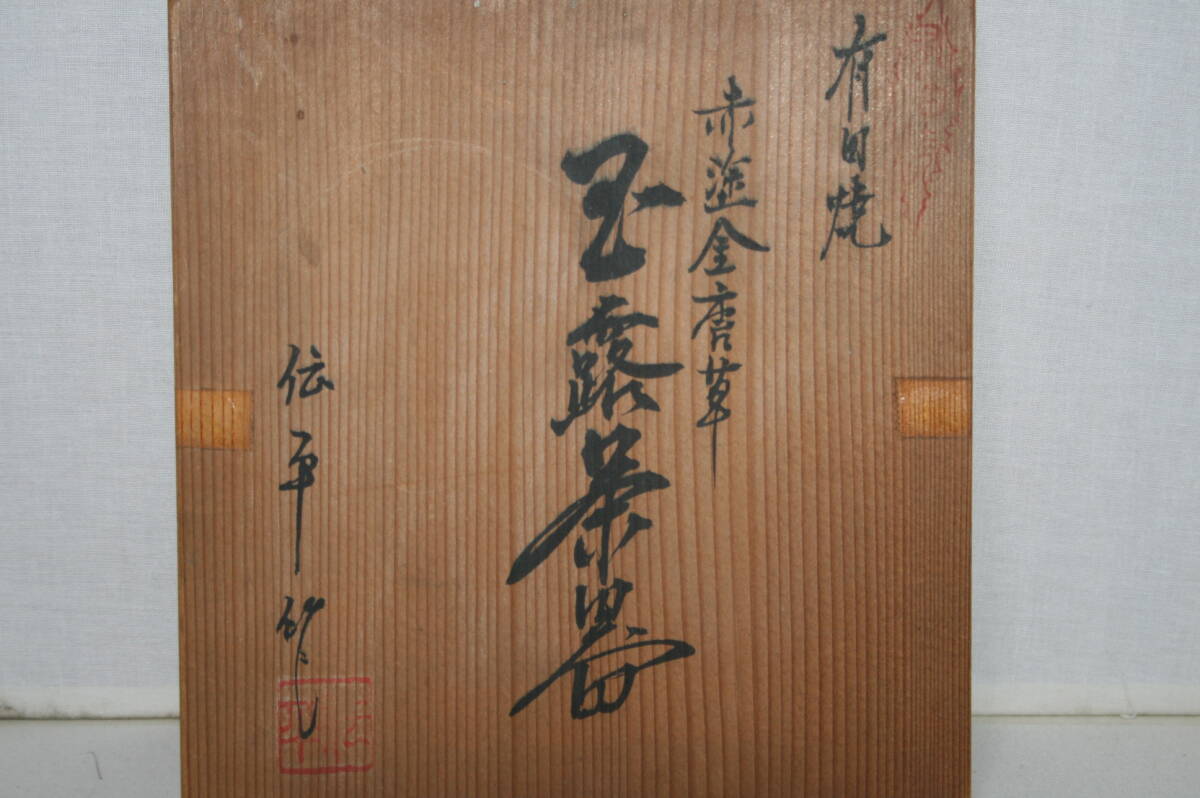 有田焼
赤塗金唐草
玉露茶器
伝平作